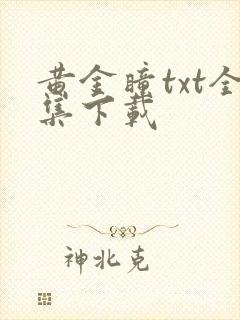 黄金瞳txt全
集下载
神北克